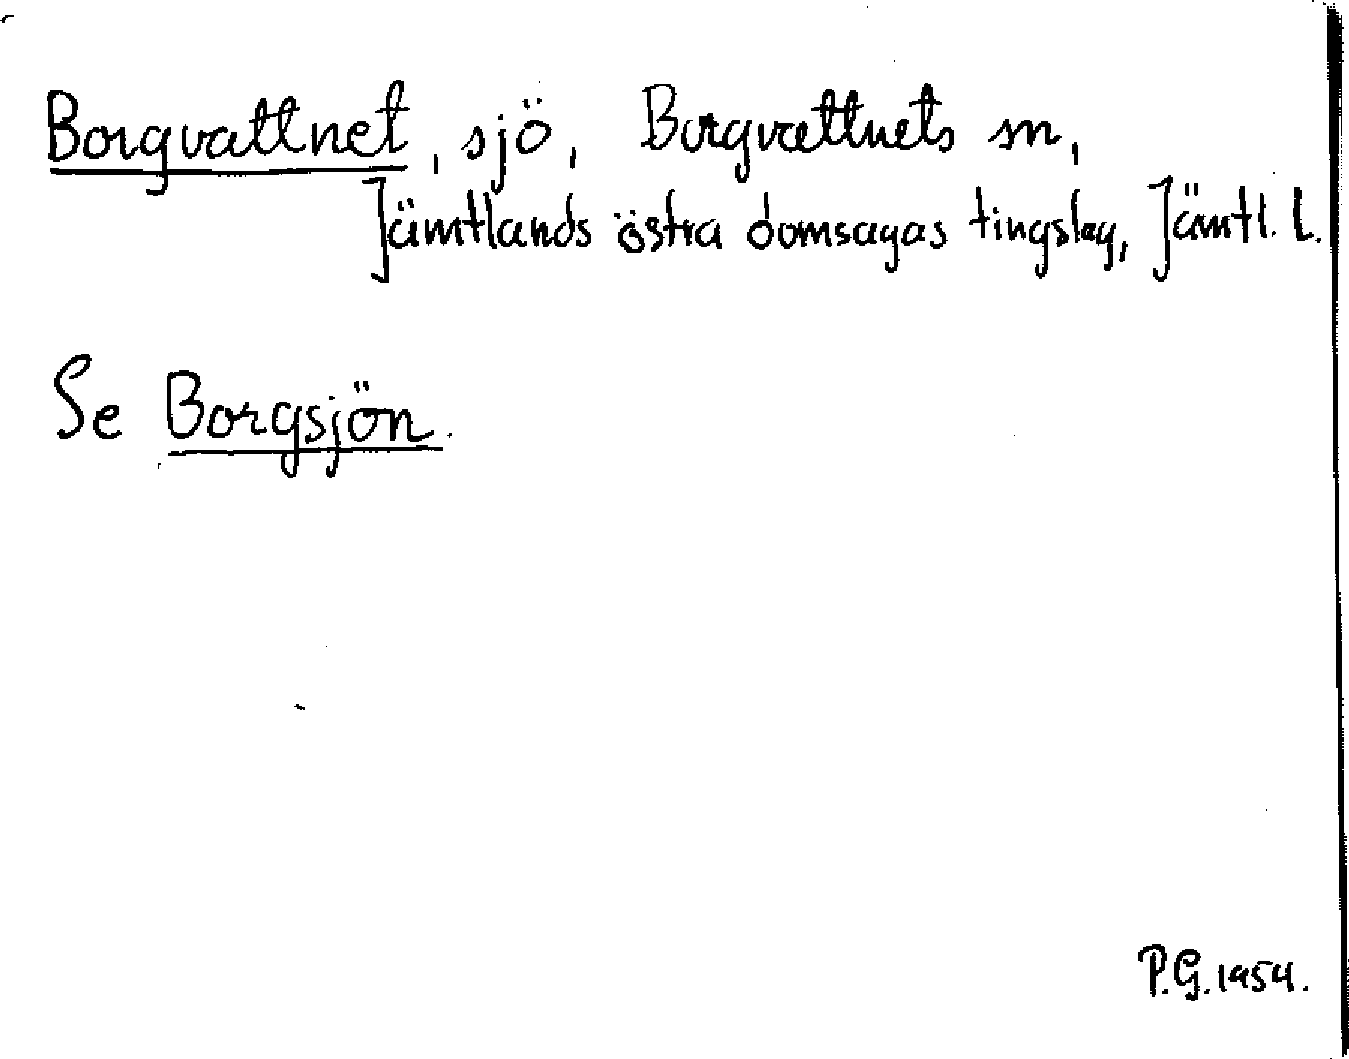 Borgvattnet, sjö, Borgvattnets sn,
Jämtlands östra domsagas tingslag, Jämtl. l.
Se Borgsjön.
P.G. 1954.